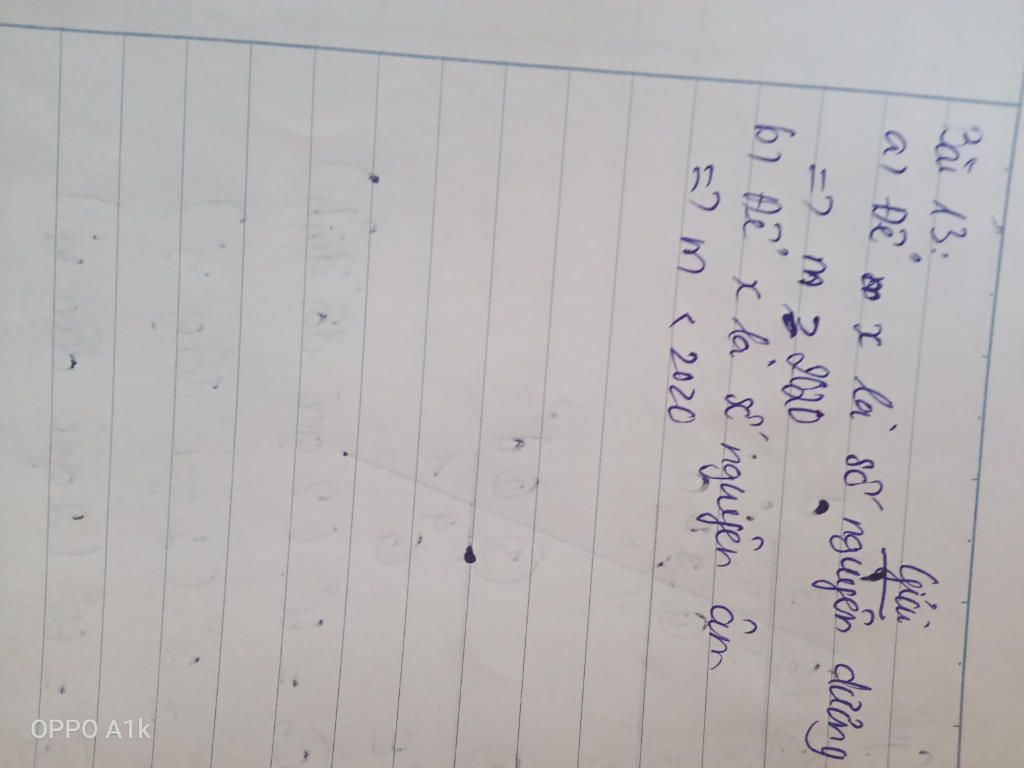 Bài 13:
Giải
a) Để x là số nguyên dương
=> m ≥ 2020
b) Để x là số nguyên âm
=> m < 2020
OPPO A1k